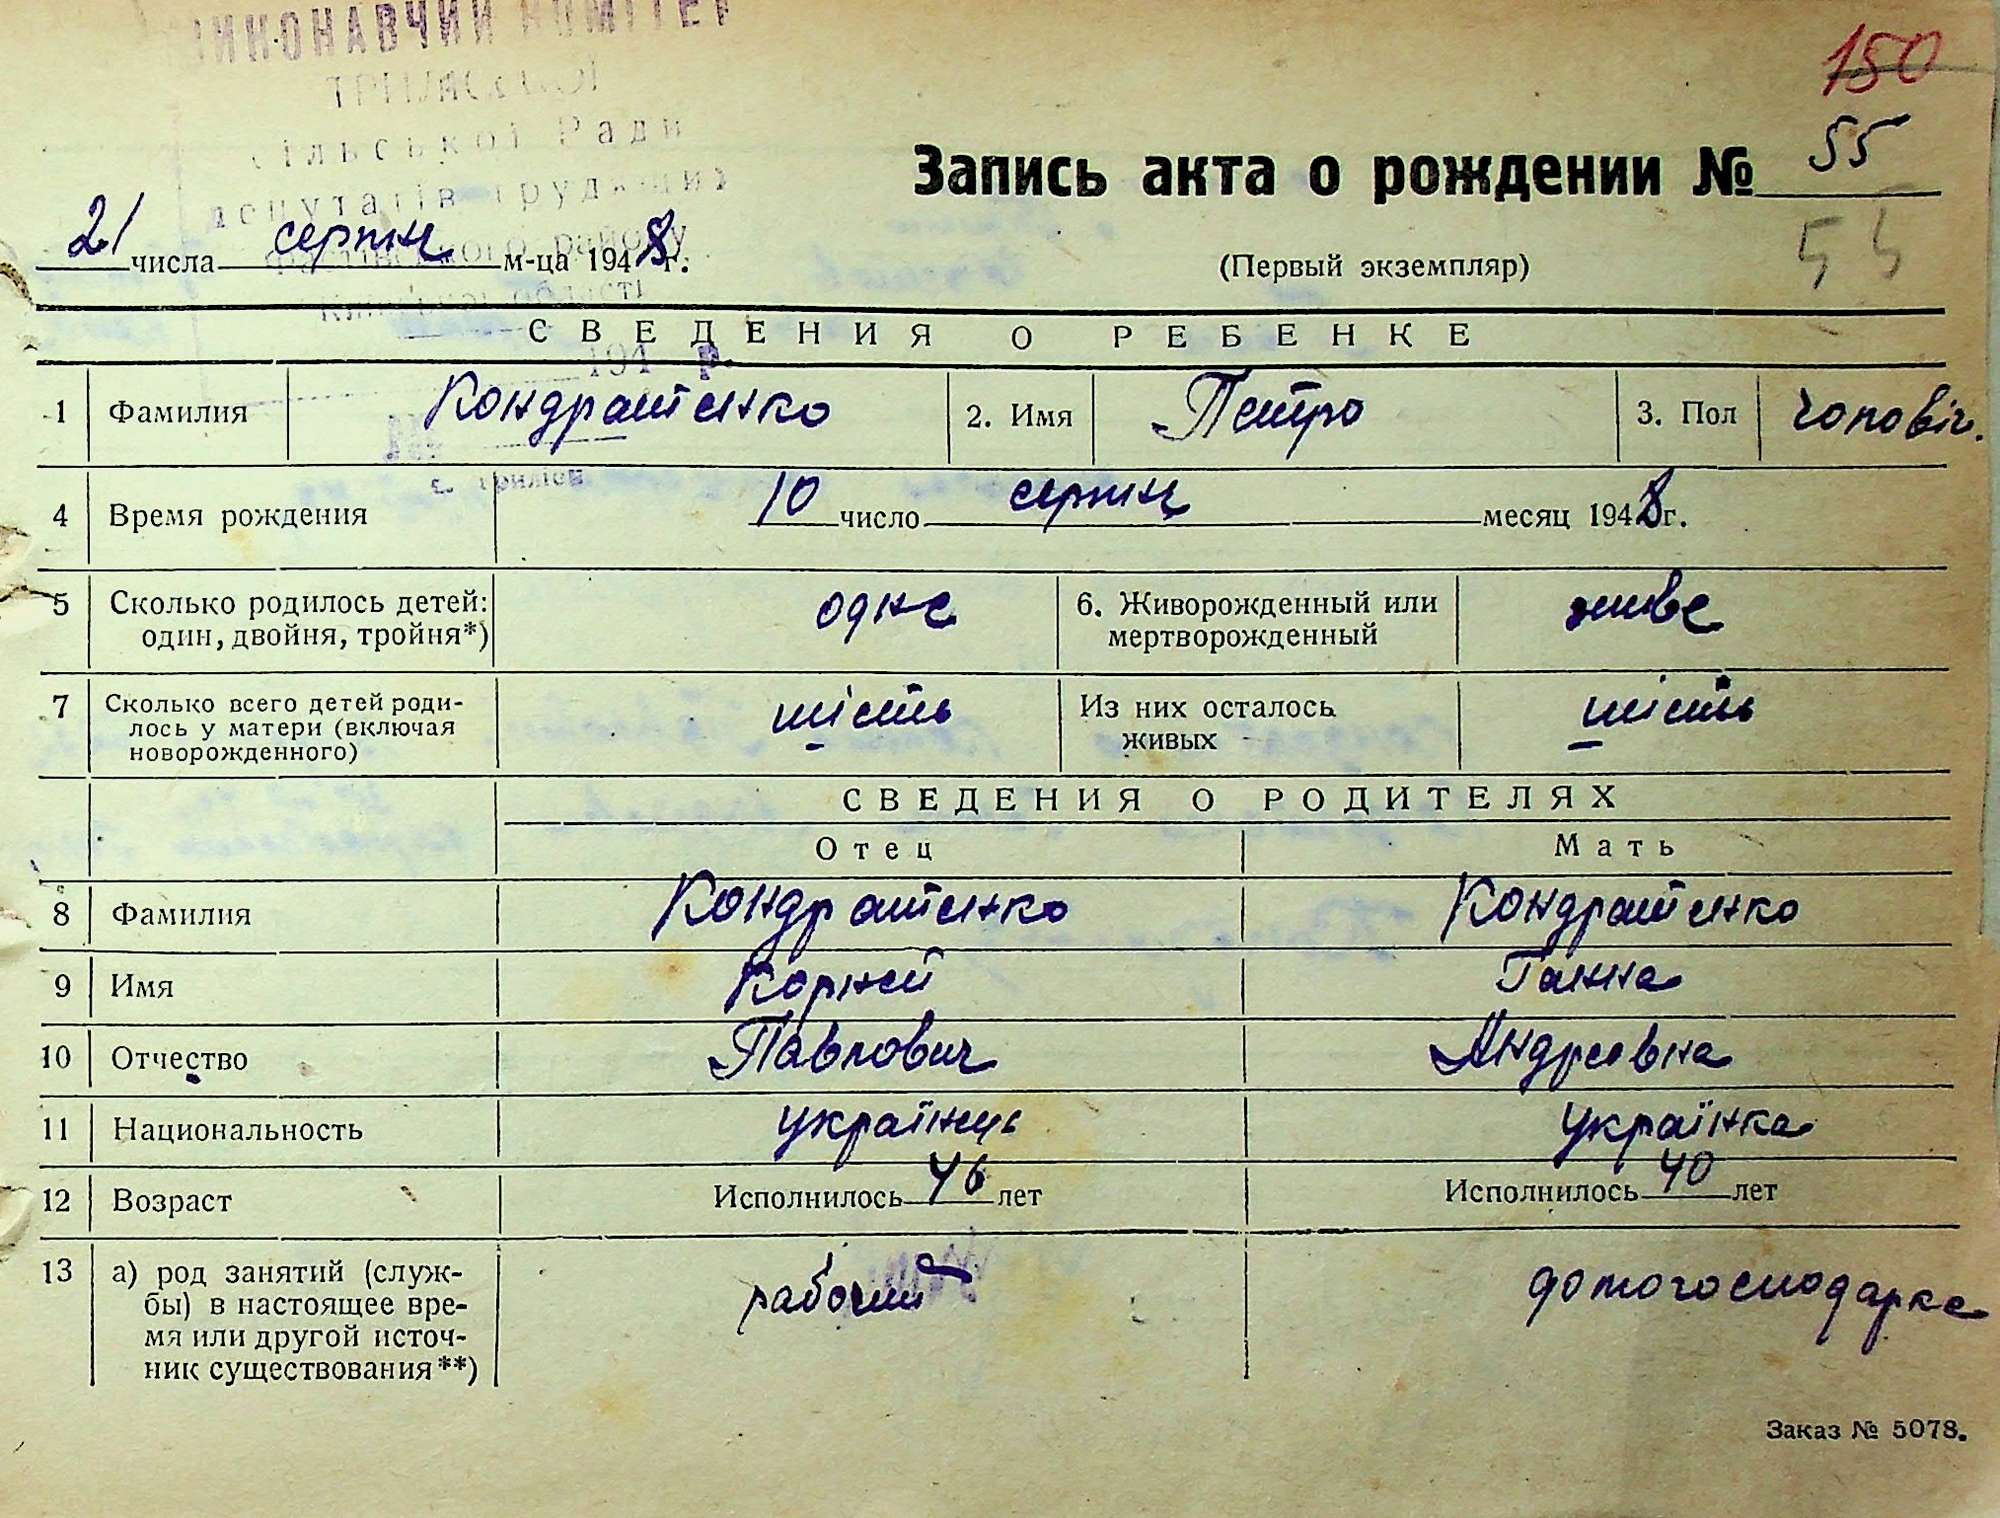 ВИКОНАВЧИЙ КОМІТЕТ
ТРИЛІСЬКОЇ
сільської Ради
депутатів трудящих
Фастівського району
Київської області
194 р.
с. Триліси
150
Запись акта о рождении № 55
55
21 числа серпня м-ца 1948 г.
(Первый экземпляр)
СВЕДЕНИЯ О РЕБЕНКЕ
1 Фамилия Кондратенко 2. Имя Петро 3. Пол чоловіч.
4 Время рождения 10 число серпня месяц 1948 г.
5 Сколько родилось детей: один, двойня, тройня*) одне 6. Живорожденный или мертворожденный живе
7 Сколько всего детей родилось у матери (включая новорожденного) шість Из них осталось живых шість
СВЕДЕНИЯ О РОДИТЕЛЯХ
Отец Мать
8 Фамилия Кондратенко Кондратенко
9 Имя Корней Ганна
10 Отчество Павлович Андреевна
11 Национальность українець українка
12 Возраст Исполнилось 46 лет Исполнилось 40 лет
13 а) род занятий (служ-
бы) в настоящее вре-
мя или другой источ-
ник существования**) рабочий домогосподарка
Заказ № 5078.